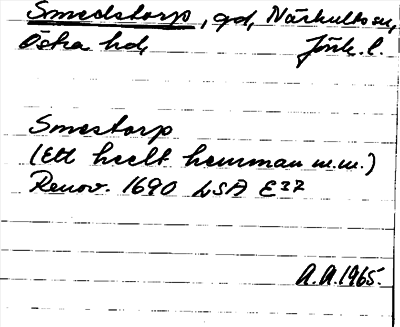 Smedstorp, gd, Näshults sn,
Östra hd, Jönk. l.
Smestorp
(Ett heelt hemman m.m.)
Renov. 1690 LSA E 37
A.A. 1965.